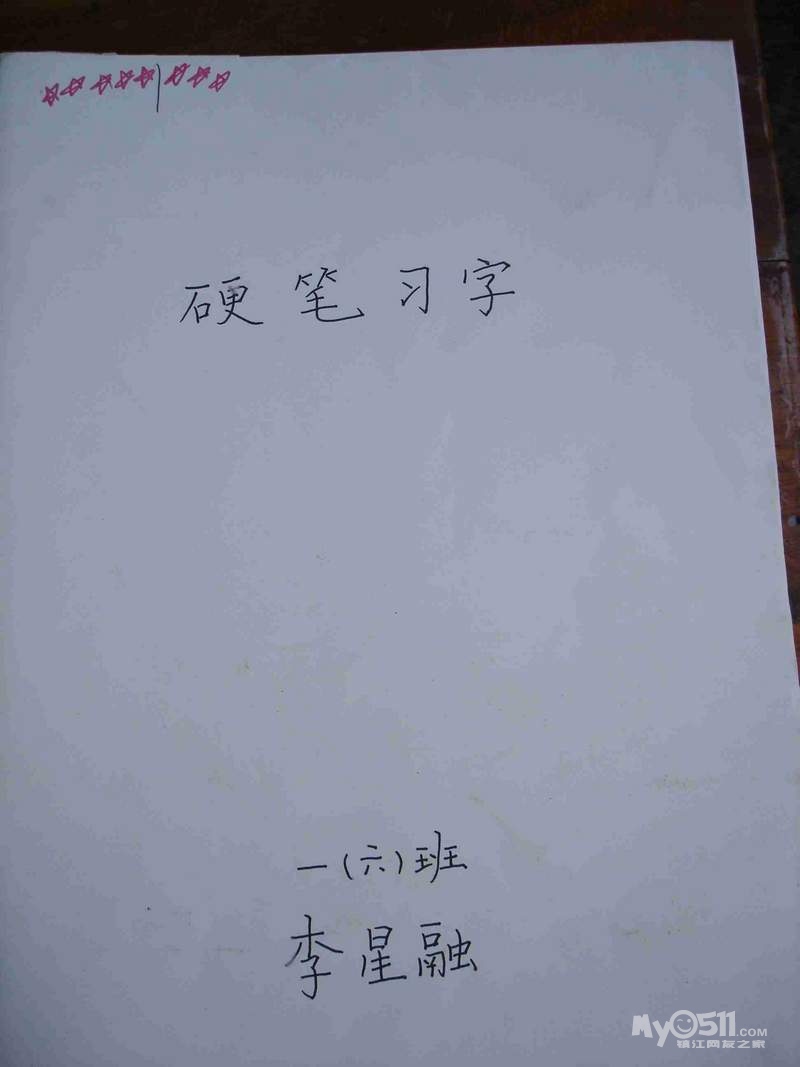 硬笔习字
一(六)班
李星融
My0511.com
镇江网友之家